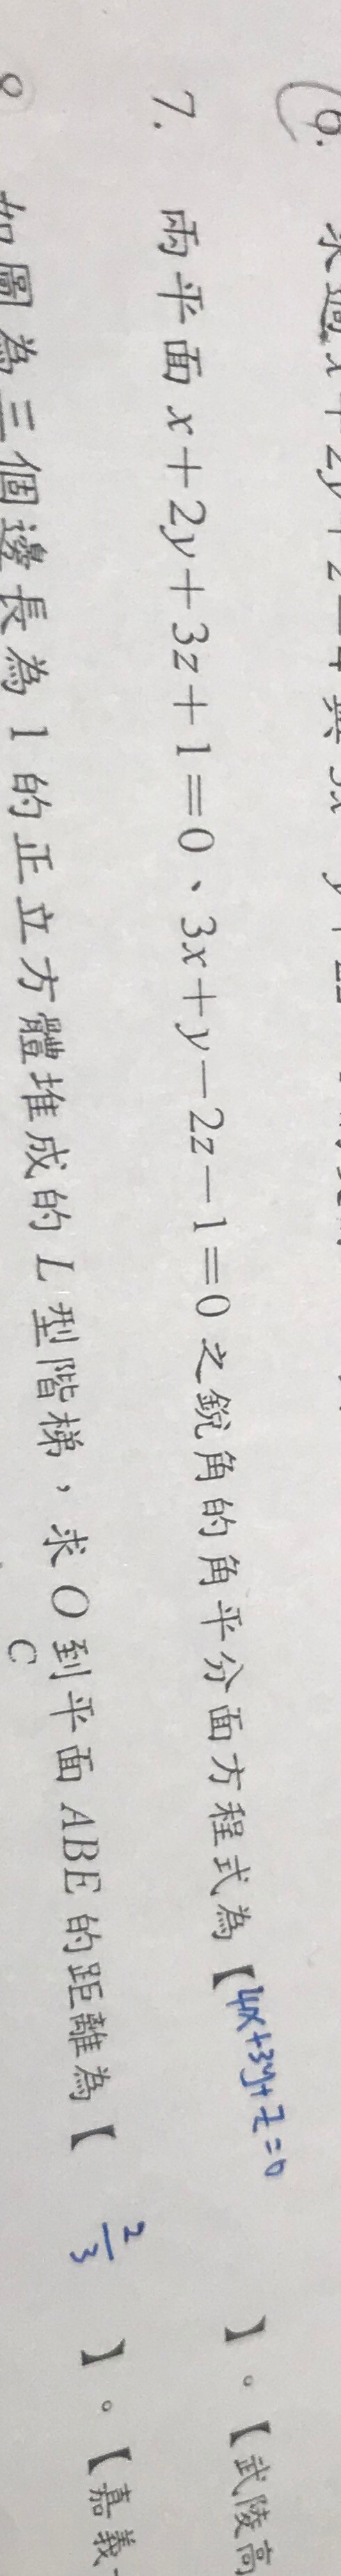 6. 求過x+2y+z=4與3x-y+2z
7. 兩平面x+2y+3z+1=0、3x+y-2z-1=0之銳角的角平分面方程式為【4x+3y+z=0】。【武陵高
8 如圖為三個邊長為1的正立方體堆成的L型階梯，求O到平面ABE的距離為【2/3】。【嘉義
C